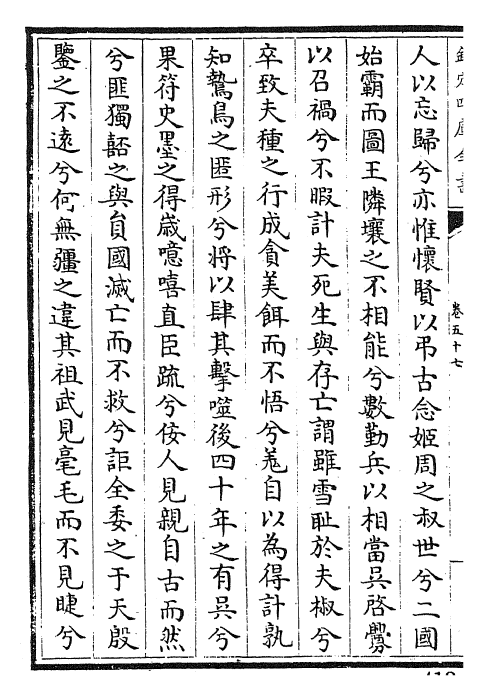 欽定四庫全書
卷五十七
人以忘歸兮亦惟懷賢以弔古念姬周之叔世兮二國
始霸而圖王隣壤之不相能兮數勤兵以相當吳啓釁
以召禍兮不暇計夫死生與存亡謂雖雪耻於夫椒兮
卒致夫種之行成貪美餌而不悟兮羗自以為得計孰
知鷙鳥之匿形兮將以肆其擊噬後四十年之有吳兮
果符史墨之得嵗噫嘻直臣疏兮佞人見親自古而然
兮匪獨嚭之與員國滅亡而不救兮詎全委之于天殷
鑒之不遠兮何無疆之違其祖武見毫毛而不見睫兮